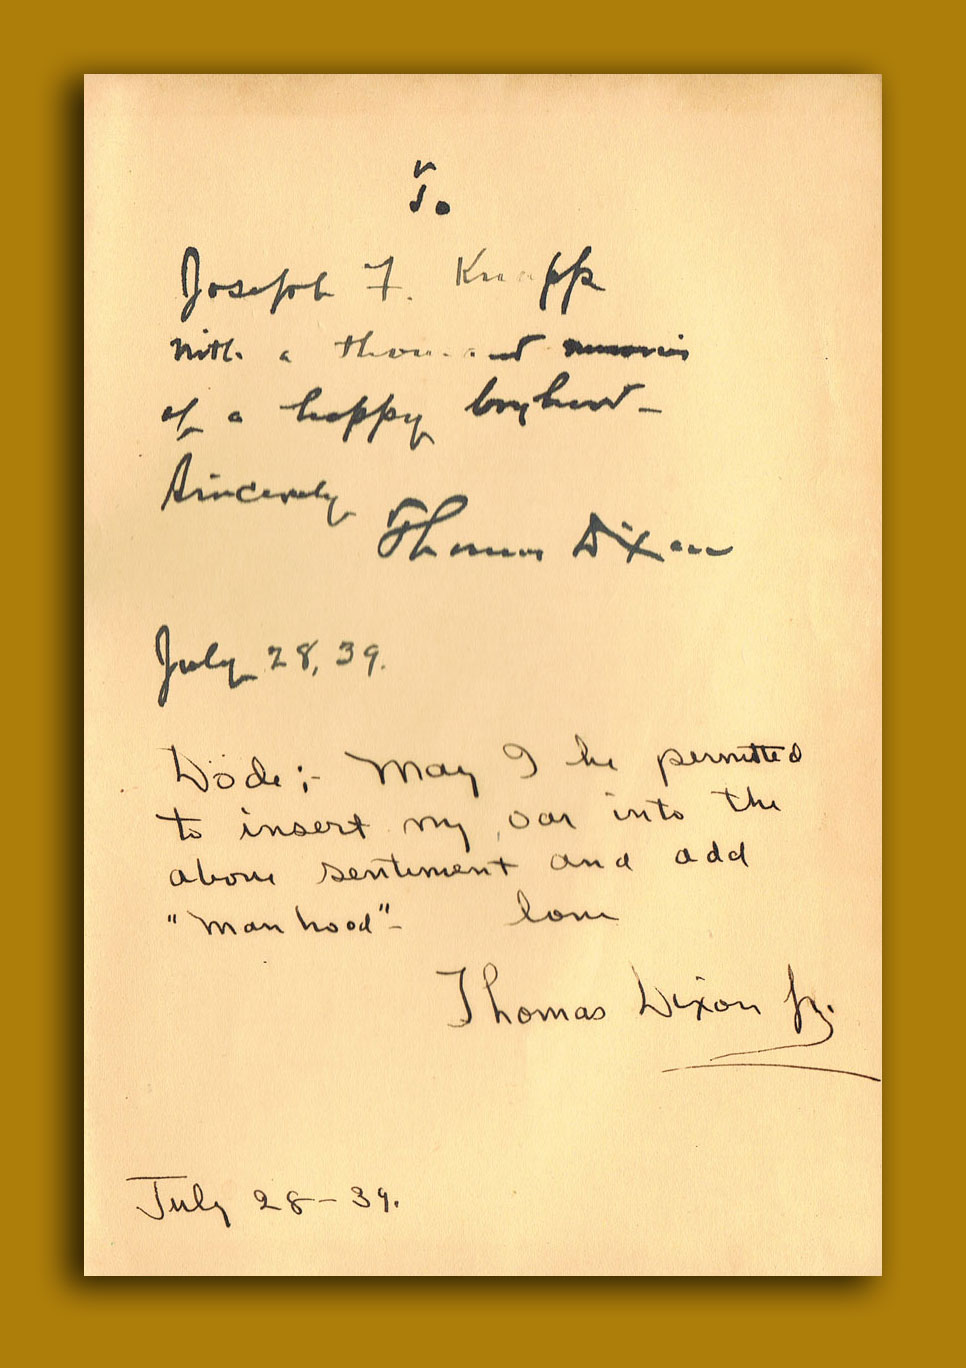 To
Joseph F. Knapp
With a thousand memories
of a happy boyhood—
Sincerely
Thomas Dixon
July 28, 39.
Dode;- May I be permitted
to insert my oar into the
above sentiment and add
"Manhood"- Love
Thomas Dixon Jr.
July 28-39.